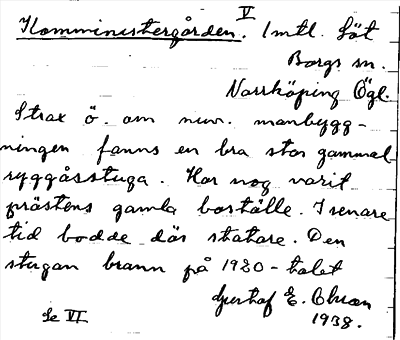 V
Komministergården. Imtl. Löt
Borgs sn.
Norrköping Ögl.
Strax ö. om nuv. manbygg-
ningen fanns en bra stor gammal
ryggåsstuga. Har nog varit
prästens gamla boställe. I senare
tid bodde där statare. Den
stugan brann på 1920-talet
Gustaf E. Olsson
1938.
Se VI